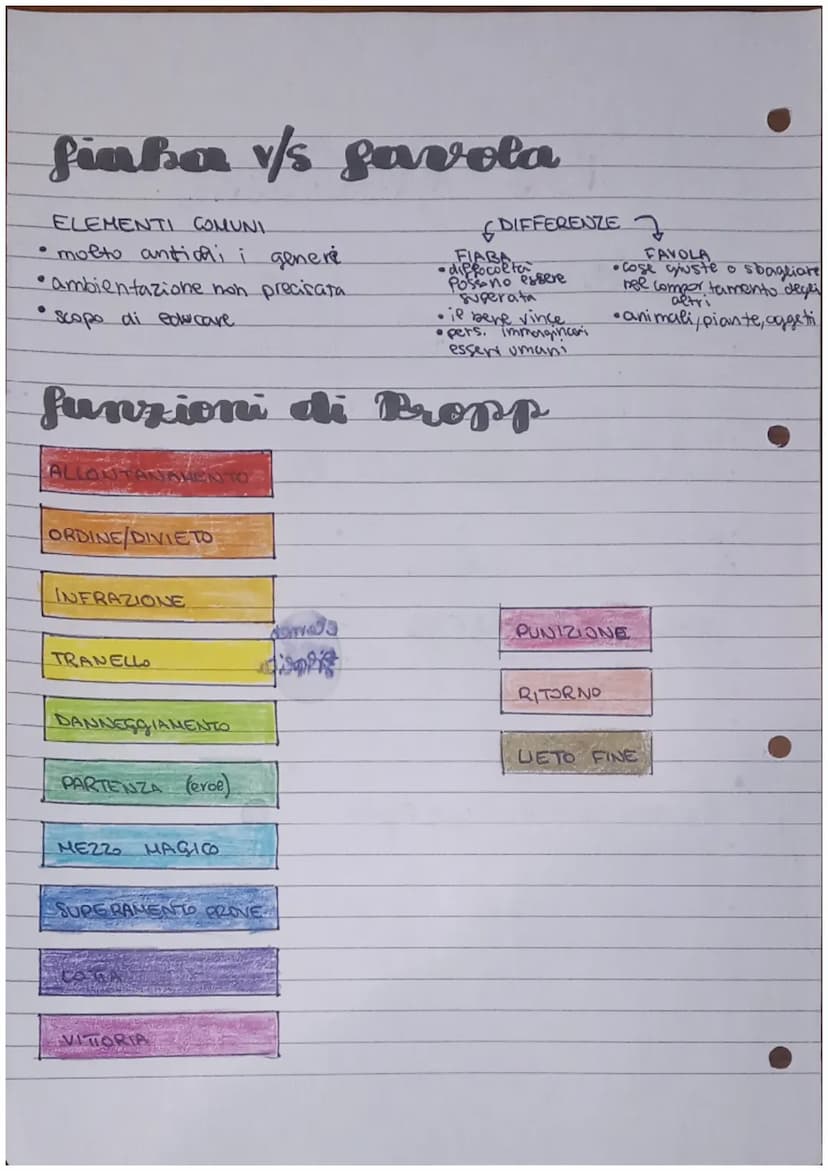 fiaba v/s favola
ELEMENTI COMUNI
• molto antichi i generi
• ambientazione non precisata
• scopo di educare
DIFFERENZE
FIABA
• diffocoltà
possono essere
superata
• il bene vince
• pers. immaginari
esseri umani
FAVOLA
• cose giuste o sbagliate
nel comportamento degli
altri
• animali, piante, oggetti
funzioni di Propp
ALLONTANAMENTO
ORDINE/DIVIETO
INFRAZIONE
TRANELLO
DANNEGGIAMENTO
PARTENZA (eroe)
MEZZO MAGICO
SUPERAMENTO PROVE
LOTTA
VITTORIA
PUNIZIONE
RITORNO
LIETO FINE